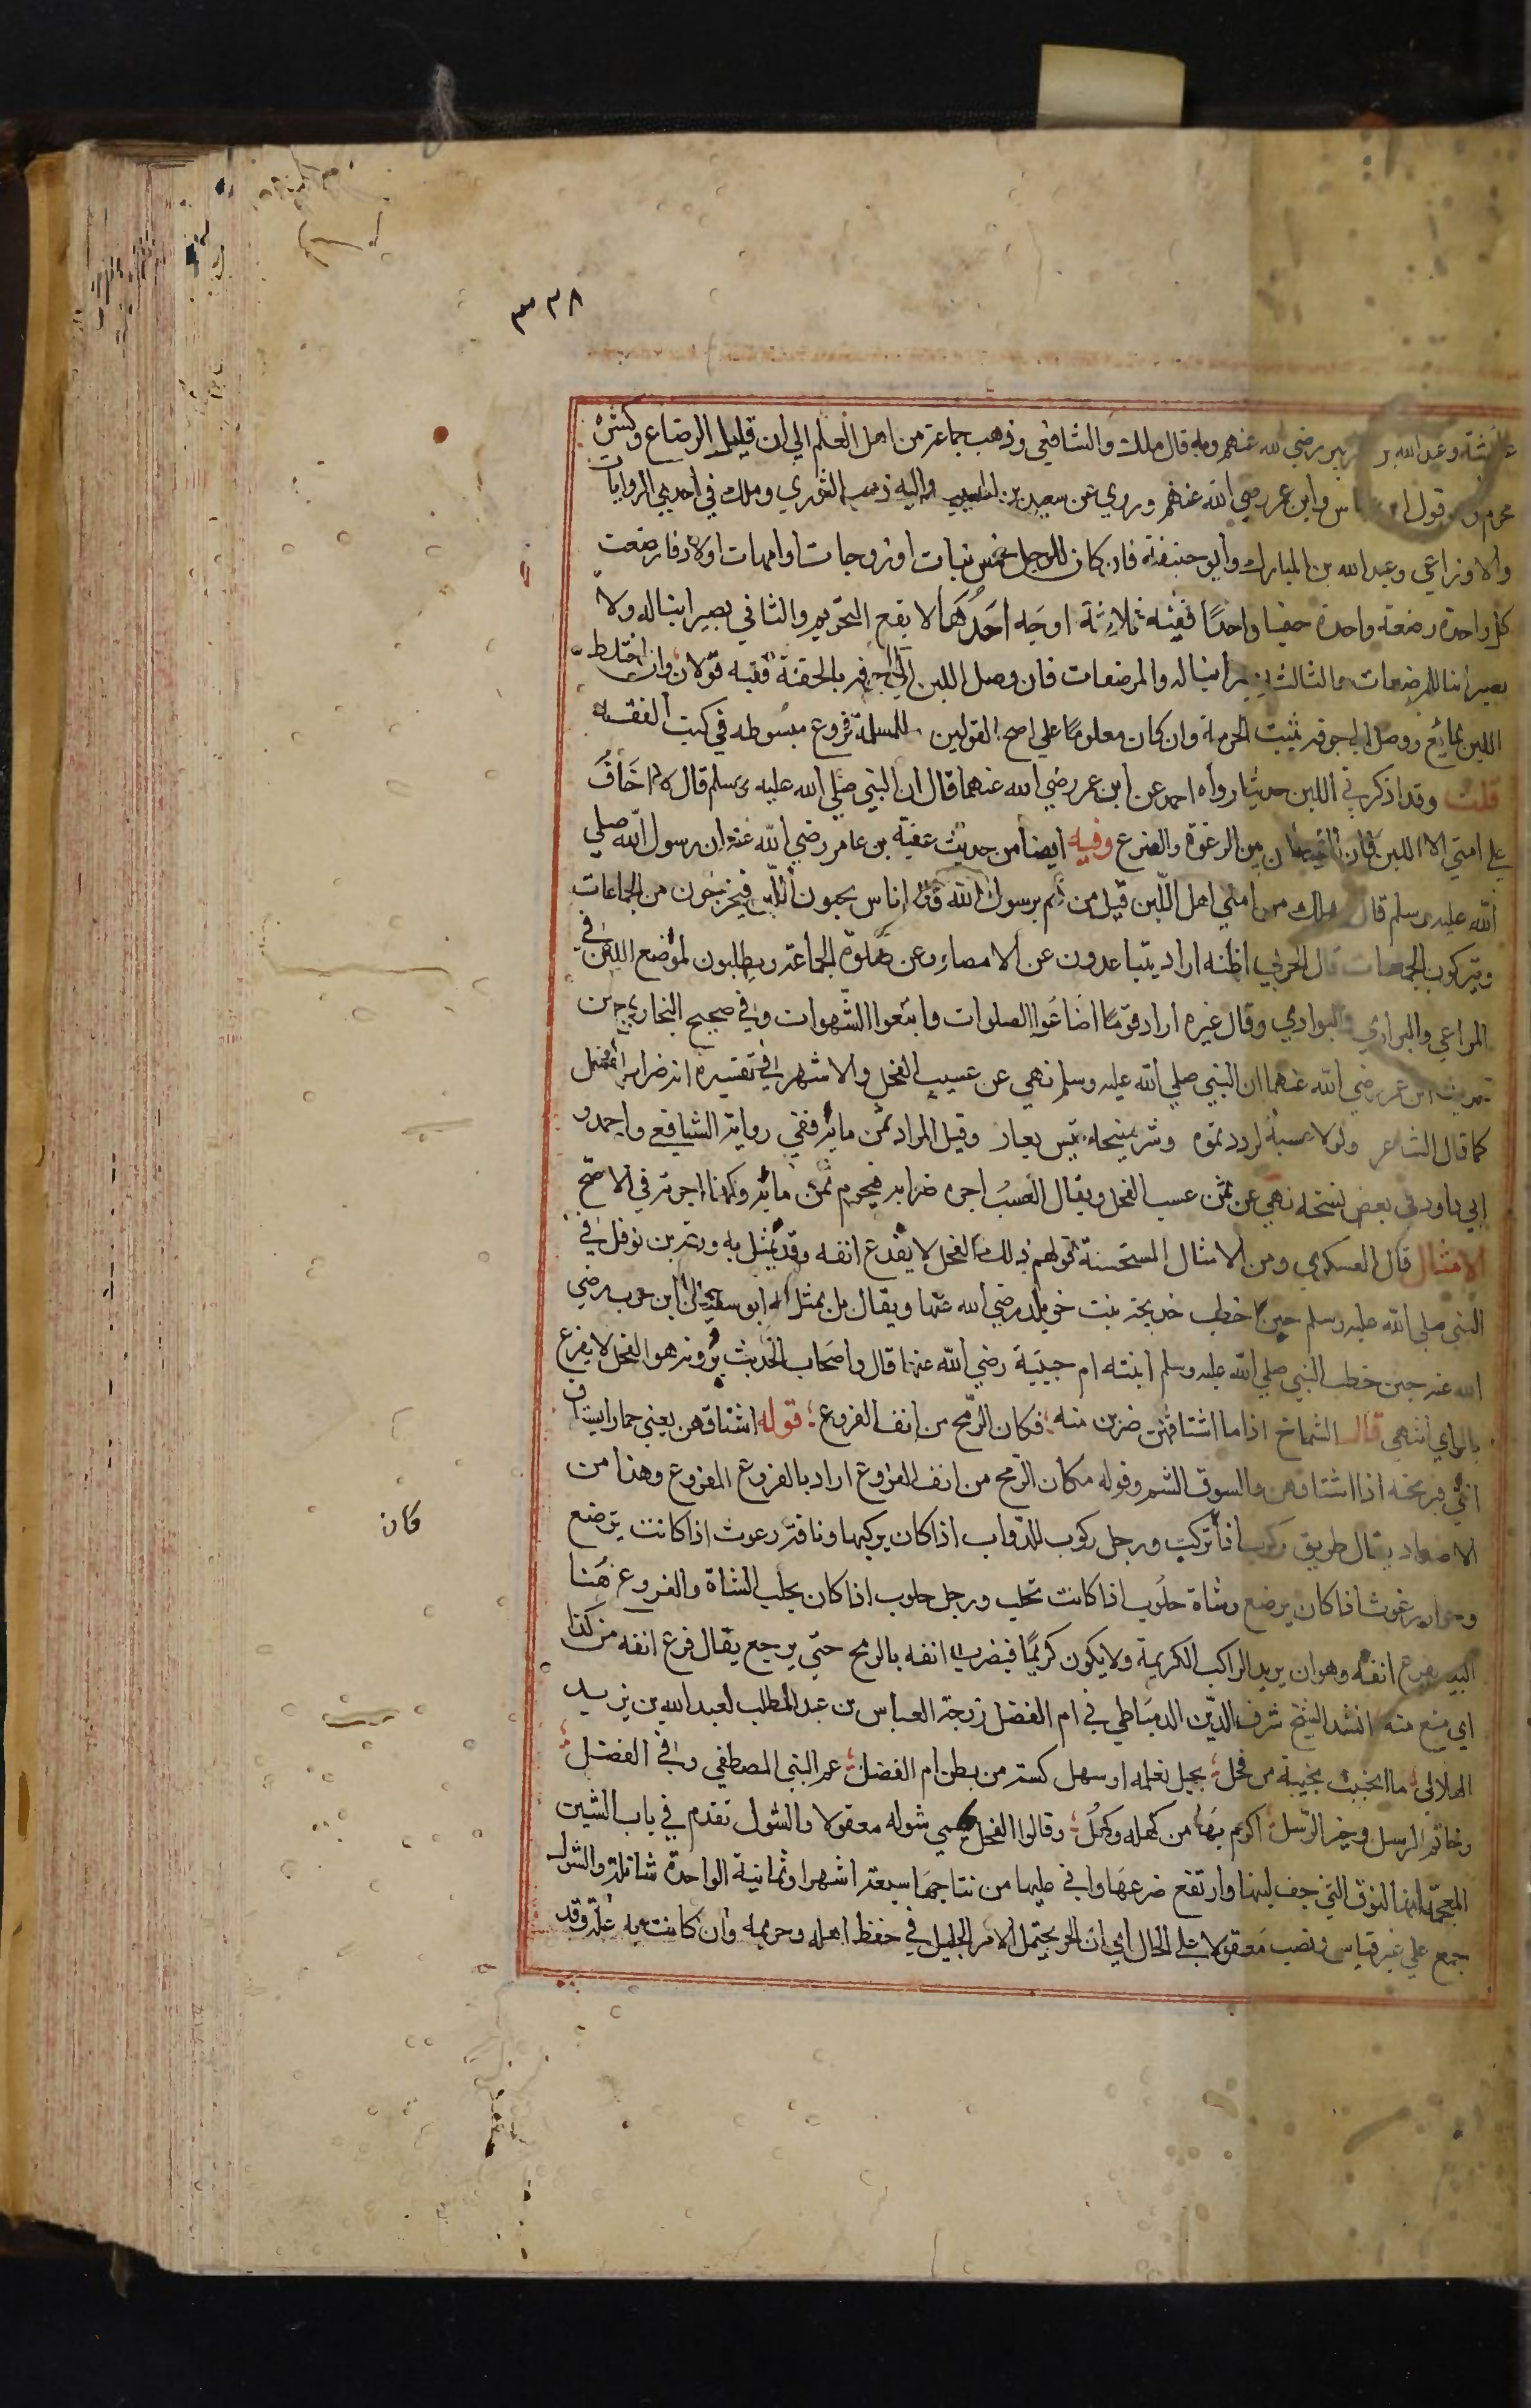 ٣٣٨
عائشة وعبد الله بن الزبير رضي الله عنهم وبه قال ملك والشافعي وذهب جماعة من اهل العلم الي ان قليل الرضاع وكثيره
محرم وهو قول ابن عباس وابن عمر رضي الله عنهم وروي عن سعيد بن المسيب واليه ذهب الثوري وملك في احدي الروايات
والاوزاعي وعبد الله بن المبارك وابو حنيفة فان كان للرجل خمس بنات او زوجات او امهات اولاد فارضعت
كل واحدة رضعة واحدة صغيرا واحدا ففيه ثلاثة اوجه احدهما لا يقع التحريم والثاني يصير ابنا له ولا
يصير ابنا للمرضعات والثالث يصير ابنا له والمرضعات فان وصل اللبن الي جوفه بالحقنة ففيه قولان وان اختلط
اللبن بمائع ووصل الي جوفه تثبت الحرمة وان كان معلوما علي اصح القولين وللمسلة فروع مبسوطه في كتب الفقه
قلت وقد اذكرني اللبن حديثا رواه احمد عن ابن عمر رضي الله عنهما قال ان النبي صلي الله عليه وسلم قال لا اخاف
علي امتي الا اللبن فان الشيطان بين الرغوة والضرع وفيه ايضا من حديث عقبة بن عامر رضي الله عنه ان رسول الله صلي
الله عليه وسلم قال هلك من امتي اهل اللبن قيل من هم يرسول الله قال اناس يحبون اللبن فيخرجون من الجماعات
ويتركون الجمعات قال الحربي اظنه اراد يتباعدون عن الامصار وعن صلوة الجماعة ويطلبون لموضع اللبن في
المراعي والبراري والبوادي وقال غيره اراد قوما اضاعوا الصلوات واتبعوا الشهوات وفي صحيح البخاري من
حديث ابن عمر رضي الله عنهما ان النبي صلي الله عليه وسلم نهي عن عسيب الفحل والاشهر في تفسيره انه ضراب الفحل
كما قال الشاعر ولولا عسبه لرددتموه وشر منيحة تيس يعار وقيل المراد ثمن مائه ففي رواية الشافعي واحمد و
ابي داود في بعض نسخه نهي عن ثمن عسب الفحل ويقال العسب اجرة ضرابه فيحرم ثمن مائه وكذا اجرته في الاصح
الامثال قال العسكري ومن الامثال المستحسنة قولهم ذلك الفحل لا يقدع انفه وقد تمثل به ورقة بن نوفل في
النبي صلي الله عليه وسلم حين خطب خديجة بنت خويلد رضي الله عنها ويقال بل تمثل به ابو سفيان ابن حرب رضي
الله عنه حين خطب النبي صلي الله عليه وسلم ابنته ام حبيبة رضي الله عنها قال واصحاب الحديث يروونه هو الفحل لا يقرع
بالراي انتهي قال الشماخ اذا ما اشتافهن ضربن منه فكان الرمح من انف القروع قوله اشتافهن يعني حمارا يشتاف
انثي يريحه اذا اشتافهن والسوف الشم وقوله مكان الرمح من انف القروع اراد بالقروع المقروع وهذا من
الاضداد يقال طريق ركوب اذا تركب ورجل ركوب للدواب اذا كان يركبها وناقة رغوث اذا كانت ترضع
وحوار رغوث اذا كان يرضع وشاة حلوب اذا كانت تحلب ورجل حلوب اذا كان يحلب الشاة والقروع هنا
البعير يقرع انفه وهو ان يريد الراكب الكريمة ولا يكون كريما فيضرب انفه بالرمح حتي يرجع يقال قرع انفه من كذا
اي منع منه انشد الشيخ شرف الدين الدمياطي في ام الفضل زوجة العباس بن عبد المطلب لعبد الله بن يزيد
الهلالي ما انجبت نجيبة من فحل بجبل نعلمه او سهل كستة من بطن ام الفضل عم النبي المصطفي وافي الفضل
وخاتم الرسل وخير الرسل اكرم بها من كهلة وكهل وقالوا الفحل يحمي شوله معقولا والشول تقدم في باب الشين
المعجمة انها النوق التي جف لبنها وارتفع ضرعها واتي عليها من نتاجها سبعة اشهر او ثمانية الواحدة شائلة والشول
جمع علي غير قياس ونصب معقولا علي الحال اي ان الحر يحتمل الامر الجليل في حفظ اهله وحريمه وان كانت به علة وقد
كان